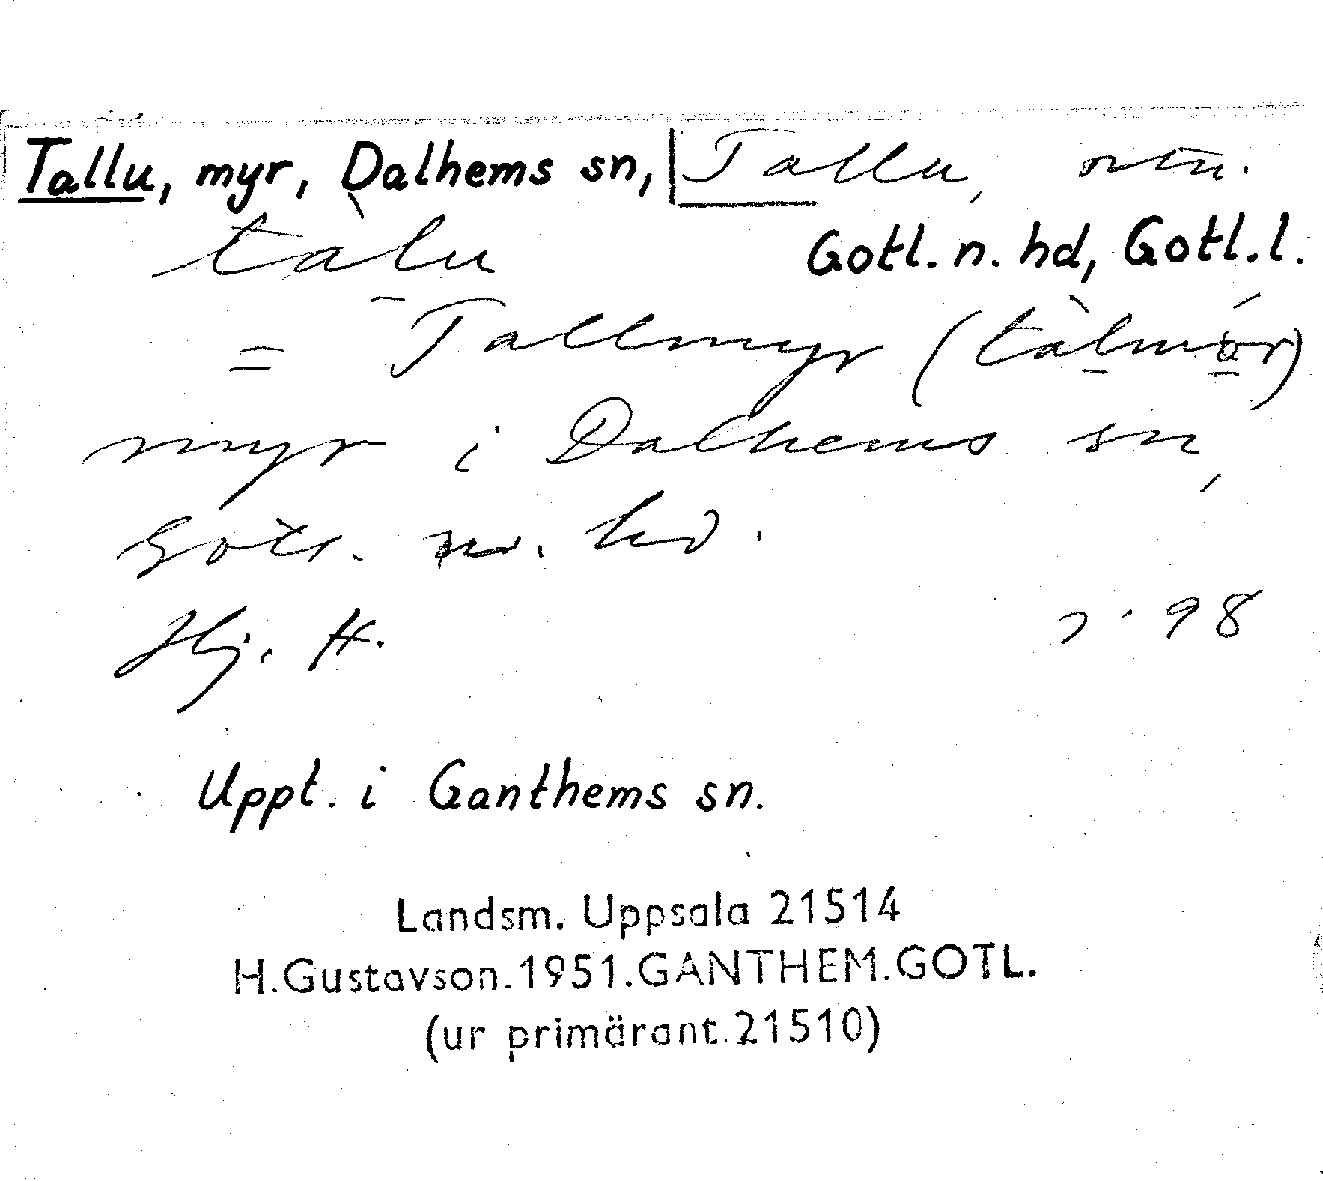 Tallu, myr, Dalhems sn, Tallu, ortn.
tàlu Gotl. n. hd, Gotl. l.
= Tallmyr (tàlmör)
myr i Dalhems sn,
Gotl. n. hd.
Hj. H. s. 98
Uppt. i Ganthems sn.
Landsm. Uppsala 21514
H.Gustavson.1951.GANTHEM.GOTL.
(ur primärant.21510)